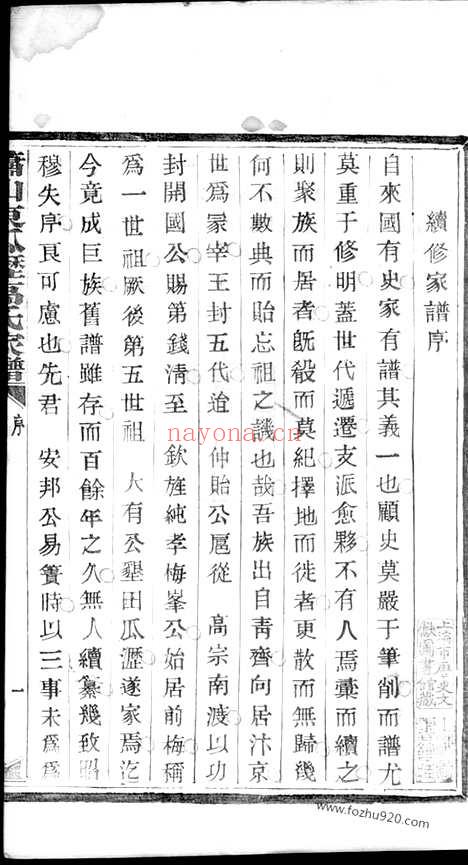 續修家譜序
自來國有史家有譜其義一也顧史莫嚴于筆削而譜尤
莫重于修明蓋世代遞遷支派愈夥不有人焉彙而續之
則聚族而居者旣殽而莫紀擇地而徙者更散而無歸幾
何不數典而貽忘祖之譏也哉吾族出自靑齊向居汴京
世爲冢宰王封五代迨 仲貽公扈從 高宗南渡以功
封開國公賜第錢淸至 欽旌純孝梅峯公始居前梅稱
爲一世祖厥後第五世祖 大有公墾田瓜瀝遂家焉迄
今竟成巨族舊譜雖存而百餘年之久無人續纂幾致昭
穆失序良可慮也先君 安邦公易簀時以三事未爲爲
序
一
nayona.cn
www.fozhu920.com